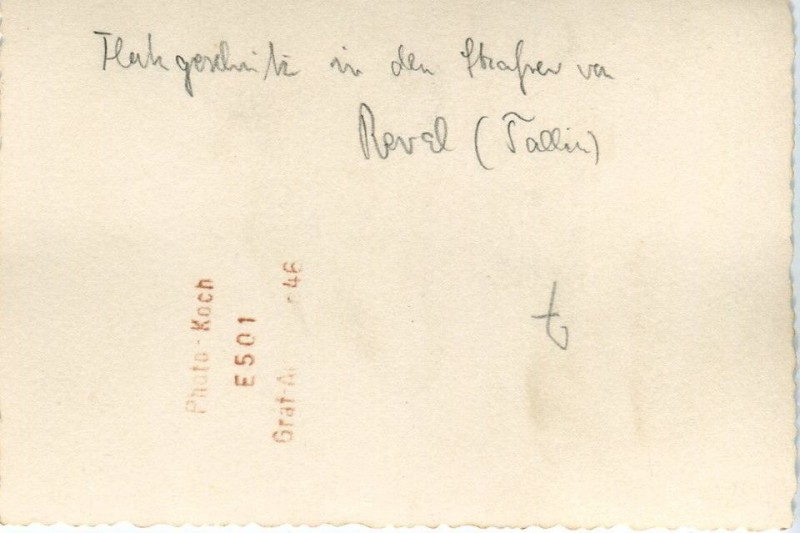 Flakgeschütz in den Straßen von
Reval (Tallin)
Photo-Koch
E501
Graf-A r 46
t